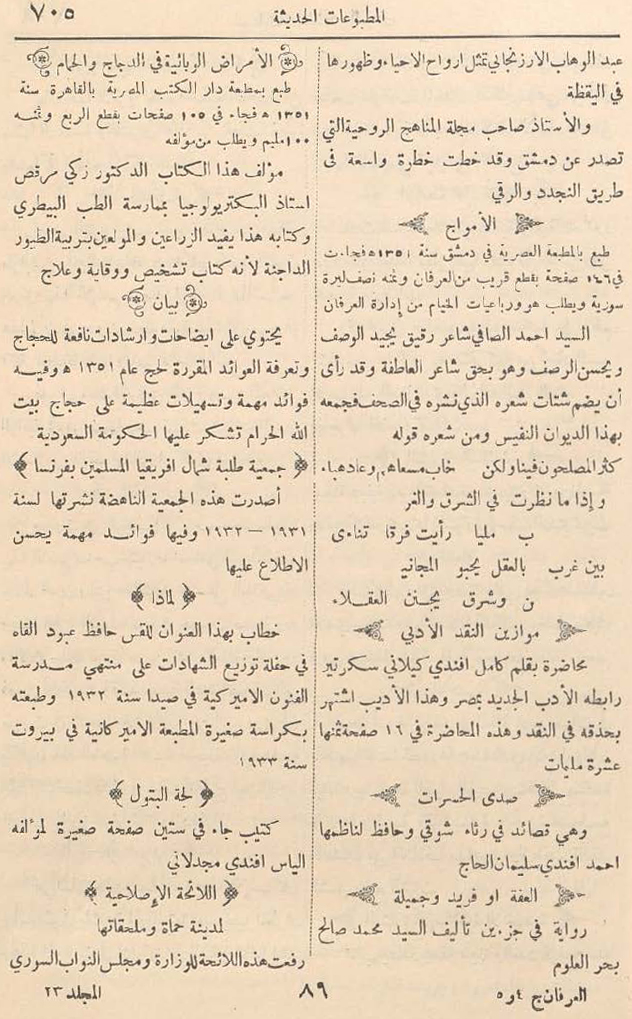 المطبوعات الحديثة
٧٠٥
عبد الوهاب الارزنجاني تمثل ارواح الاحياء وظهورها
في اليقظة
والأستاذ صاحب مجلة المناهج الروحية التي
تصدر عن دمشق وقد خطت خطوة واسعة في
طريق التجدد والرقي
الأمواج
طبع بالمطبعة العصرية في دمشق سنة ١٣٥١ هـ فجاءت
في ١٤٦ صفحة بقطع قريب من العرفان وثمنه نصف ليرة
سورية ويطلب هو ورباعيات الخيام من إدارة العرفان
السيد احمد الصافي شاعر رقيق يجيد الوصف
ويحسن الرصف وهو بحق شاعر العاطفة وقد رأى
أن يضم شتات شعره الذي نشره في الصحف فجمعه
بهذا الديوان النفيس ومن شعره قوله
كثر المصلحون فينا ولكن خاب مسعاهم وعاد هباء
وإذا ما نظرت في الشرق والغر
ب مليا رأيت فرقا تناءى
بين غرب بالعقل يحبو المجانيـ
ن وشرق يجنن العقلاء
موازين النقد الأدبي
محاضرة بقلم كامل افندي كيلاني سكرتير
رابطه الأدب الجديد بمصر وهذا الأديب اشتهر
بحذقه في النقد وهذه المحاضرة في ١٦ صفحة ثمنها
عشرة مليمات
صدى الحسرات
وهي قصائد في رثاء شوقي وحافظ لناظمها
احمد افندي سليمان الحاج
العفة او فريد وجميلة
رواية في جزءين تأليف السيد محمد صالح
بحر العلوم
الأمراض الوبائية في الدجاج والحمام
طبع بمطبعة دار الكتب المصرية بالقاهرة سنة
١٣٥١ هـ فجاء في ١٠٥ صفحات بقطع الربع وثمنه
١٠٠ مليم ويطلب من مؤلفه
مؤلف هذا الكتاب الدكتور زكي مرقص
استاذ البكتريولوجيا بممارسة الطب البيطري
وكتابه هذا يفيد الزراعين والمولعين بتربية الطيور
الداجنة لأنه كتاب تشخيص ووقاية وعلاج
بيان
يحتوي على ايضاحات وارشادات نافعة للحجاج
وتعرفة العوائد المقررة لحج عام ١٣٥١ هـ وفيه
فوائد مهمة وتسهيلات عظيمة على حجاج بيت
الله الحرام تشكر عليها الحكومة السعودية
جمعية طلبة شمال افريقيا المسلمين بفرنسا
أصدرت هذه الجمعية الناهضة نشرتها لسنة
١٩٣١ – ١٩٣٢ وفيها فوائد مهمة يحسن
الاطلاع عليها
لماذا
خطاب بهذا العنوان للقس حافظ عبود القاه
في حفلة توزيع الشهادات على منتهي مدرسة
الفنون الاميركية في صيدا سنة ١٩٣٢ وطبعته
بكراسة صغيرة المطبعة الاميركانية في بيروت
سنة ١٩٣٣
لحة البتول
كتيب جاء في ستين صفحة صغيرة لمؤلفه
الياس افندي مجدلاني
اللائحة الإصلاحية
لمدينة حماة وملحقاتها
رفعت هذه اللائحة للوزارة ومجلس النواب السوري
العرفان ج ٤ و ٥
٨٩
المجلد ٢٣